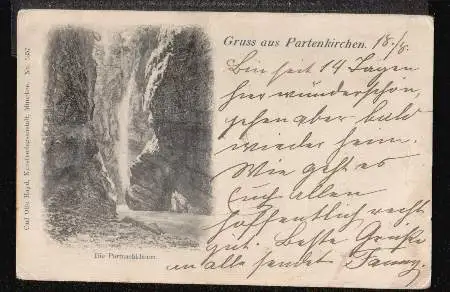 Gruss aus Partenkirchen. 18./8.
Bin seit 14 Tagen
hier wunderschön,
gehen aber bald
wieder heim.
Wie geht es
Euch allen
hoffentlich recht
gut. Beste Grüße
an alle sendet Fanny.
Die Partnachklamm.
Carl Otto Hayd, Kunstverlagsanstalt, München. No.